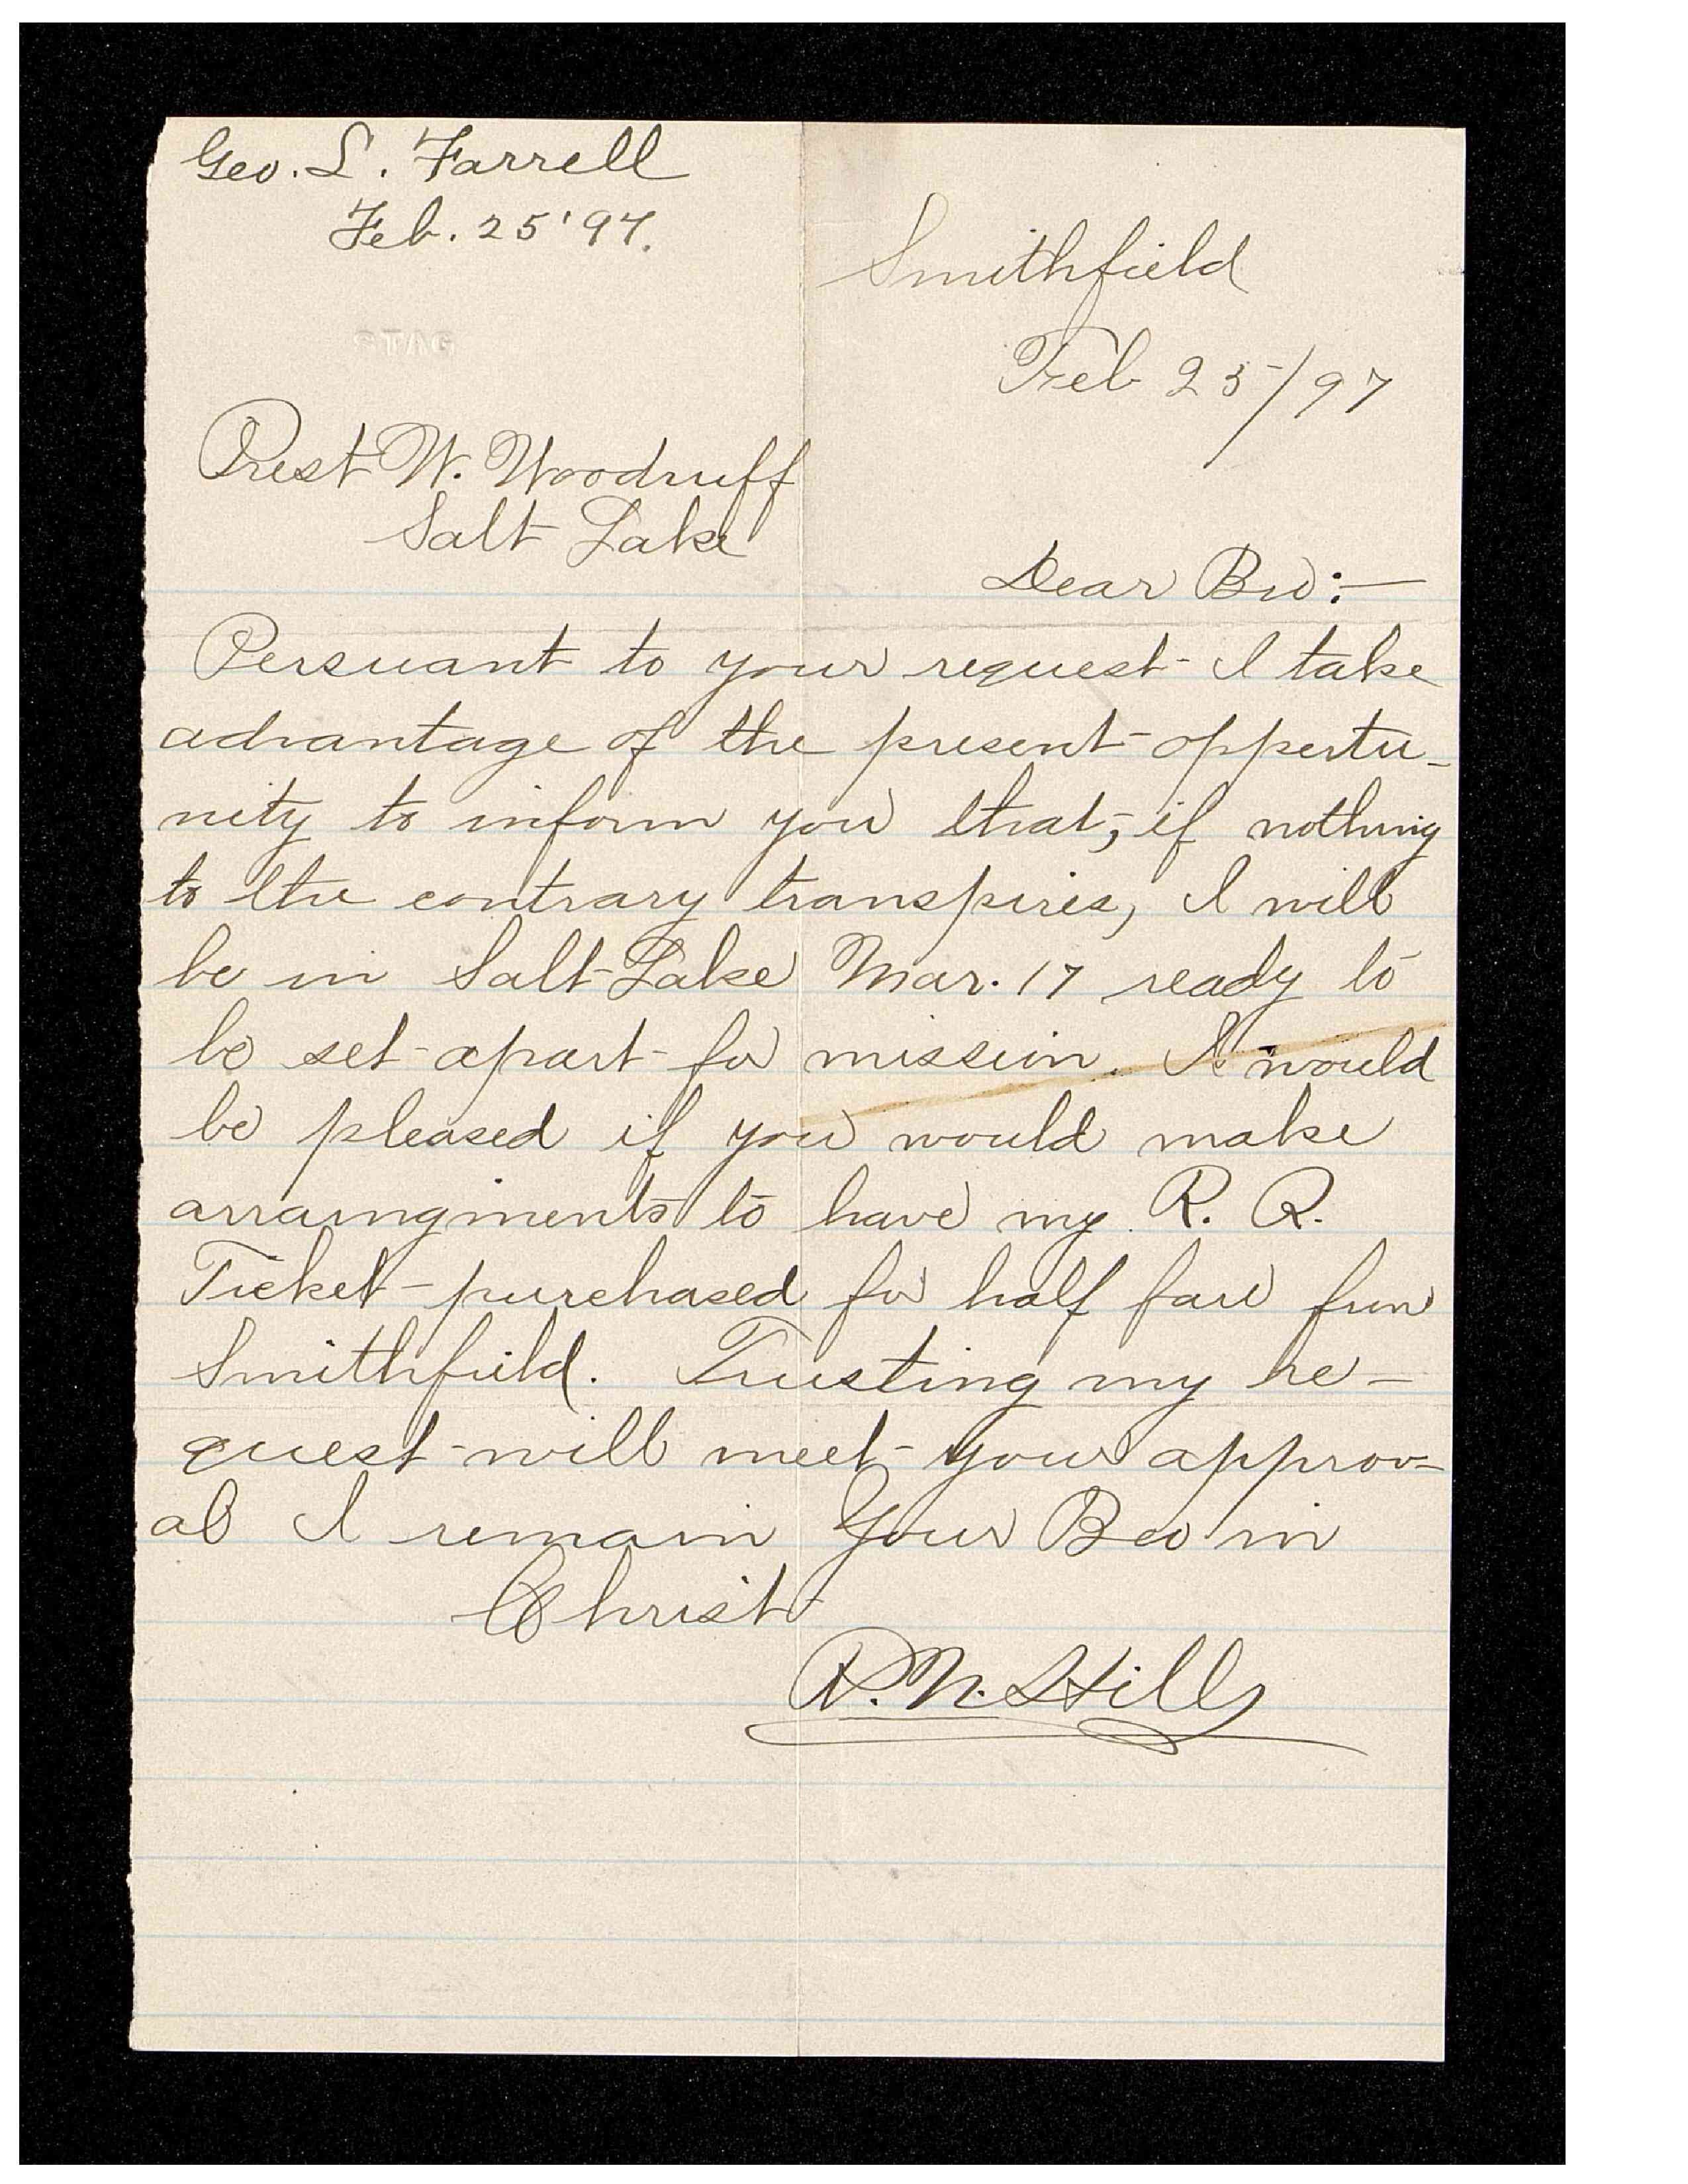 Geo. L. Farrell
Feb. 25 '97.
Smithfield
Feb 25/97
Prest W. Woodruff
Salt Lake
Dear Bro:—
Persuant to your request I take
advantage of the present oppertu-
nity to inform you that, if nothing
to the contrary transpires, I will
be in Salt Lake Mar. 17 ready to
be set apart for mission. I would
be pleased if you would make
arraingments to have my R. R.
Ticket purchased for half fare from
Smithfield. Trusting my re-
quest will meet your approv-
al I remain Your Bro in
Christ
N. Hill